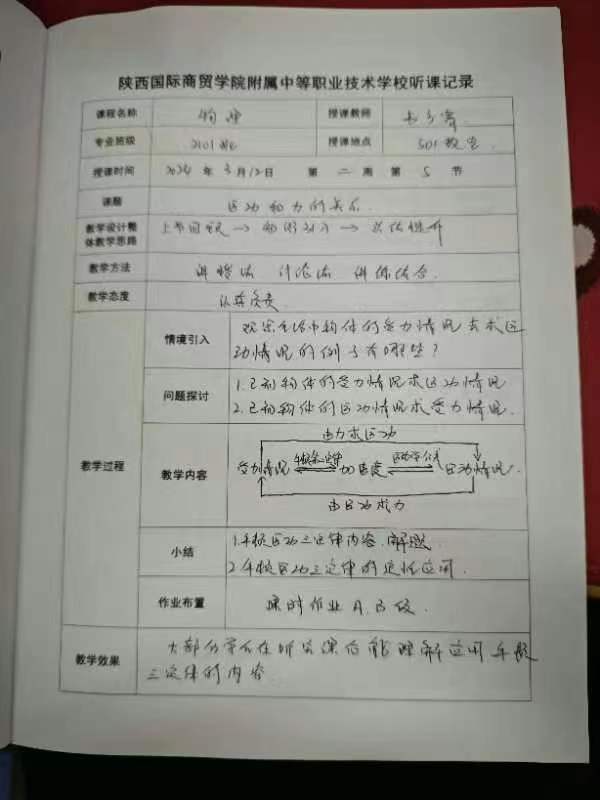 陕西国际商贸学院附属中等职业技术学校听课记录
课程名称 物理 授课教师
专业班级 2101 授课地点 501教室
授课时间 2024年3月12日 第二周 第5节
课题 运动和力的关系
教学设计整体教学思路 上节回顾→ →
教学方法 讲授法 讨论法 讲练结合
教学态度 认真负责
教学过程
情境引入 观察生活中物体的受力情况去求运
动情况的例子有哪些?
问题探讨 1.已知物体的受力情况求运动情况
2.已知物体的运动情况求受力情况.
教学内容
由力求运动
受力情况 牛顿第二定律 加速度 运动学公式 运动情况
由运动求力
小结 1.牛顿运动三定律内容.解题
2.牛顿运动三定律的 应用.
作业布置 课时作业A.B级.
教学效果 大部分学生在听完课后能理解应用牛顿
三定律的内容